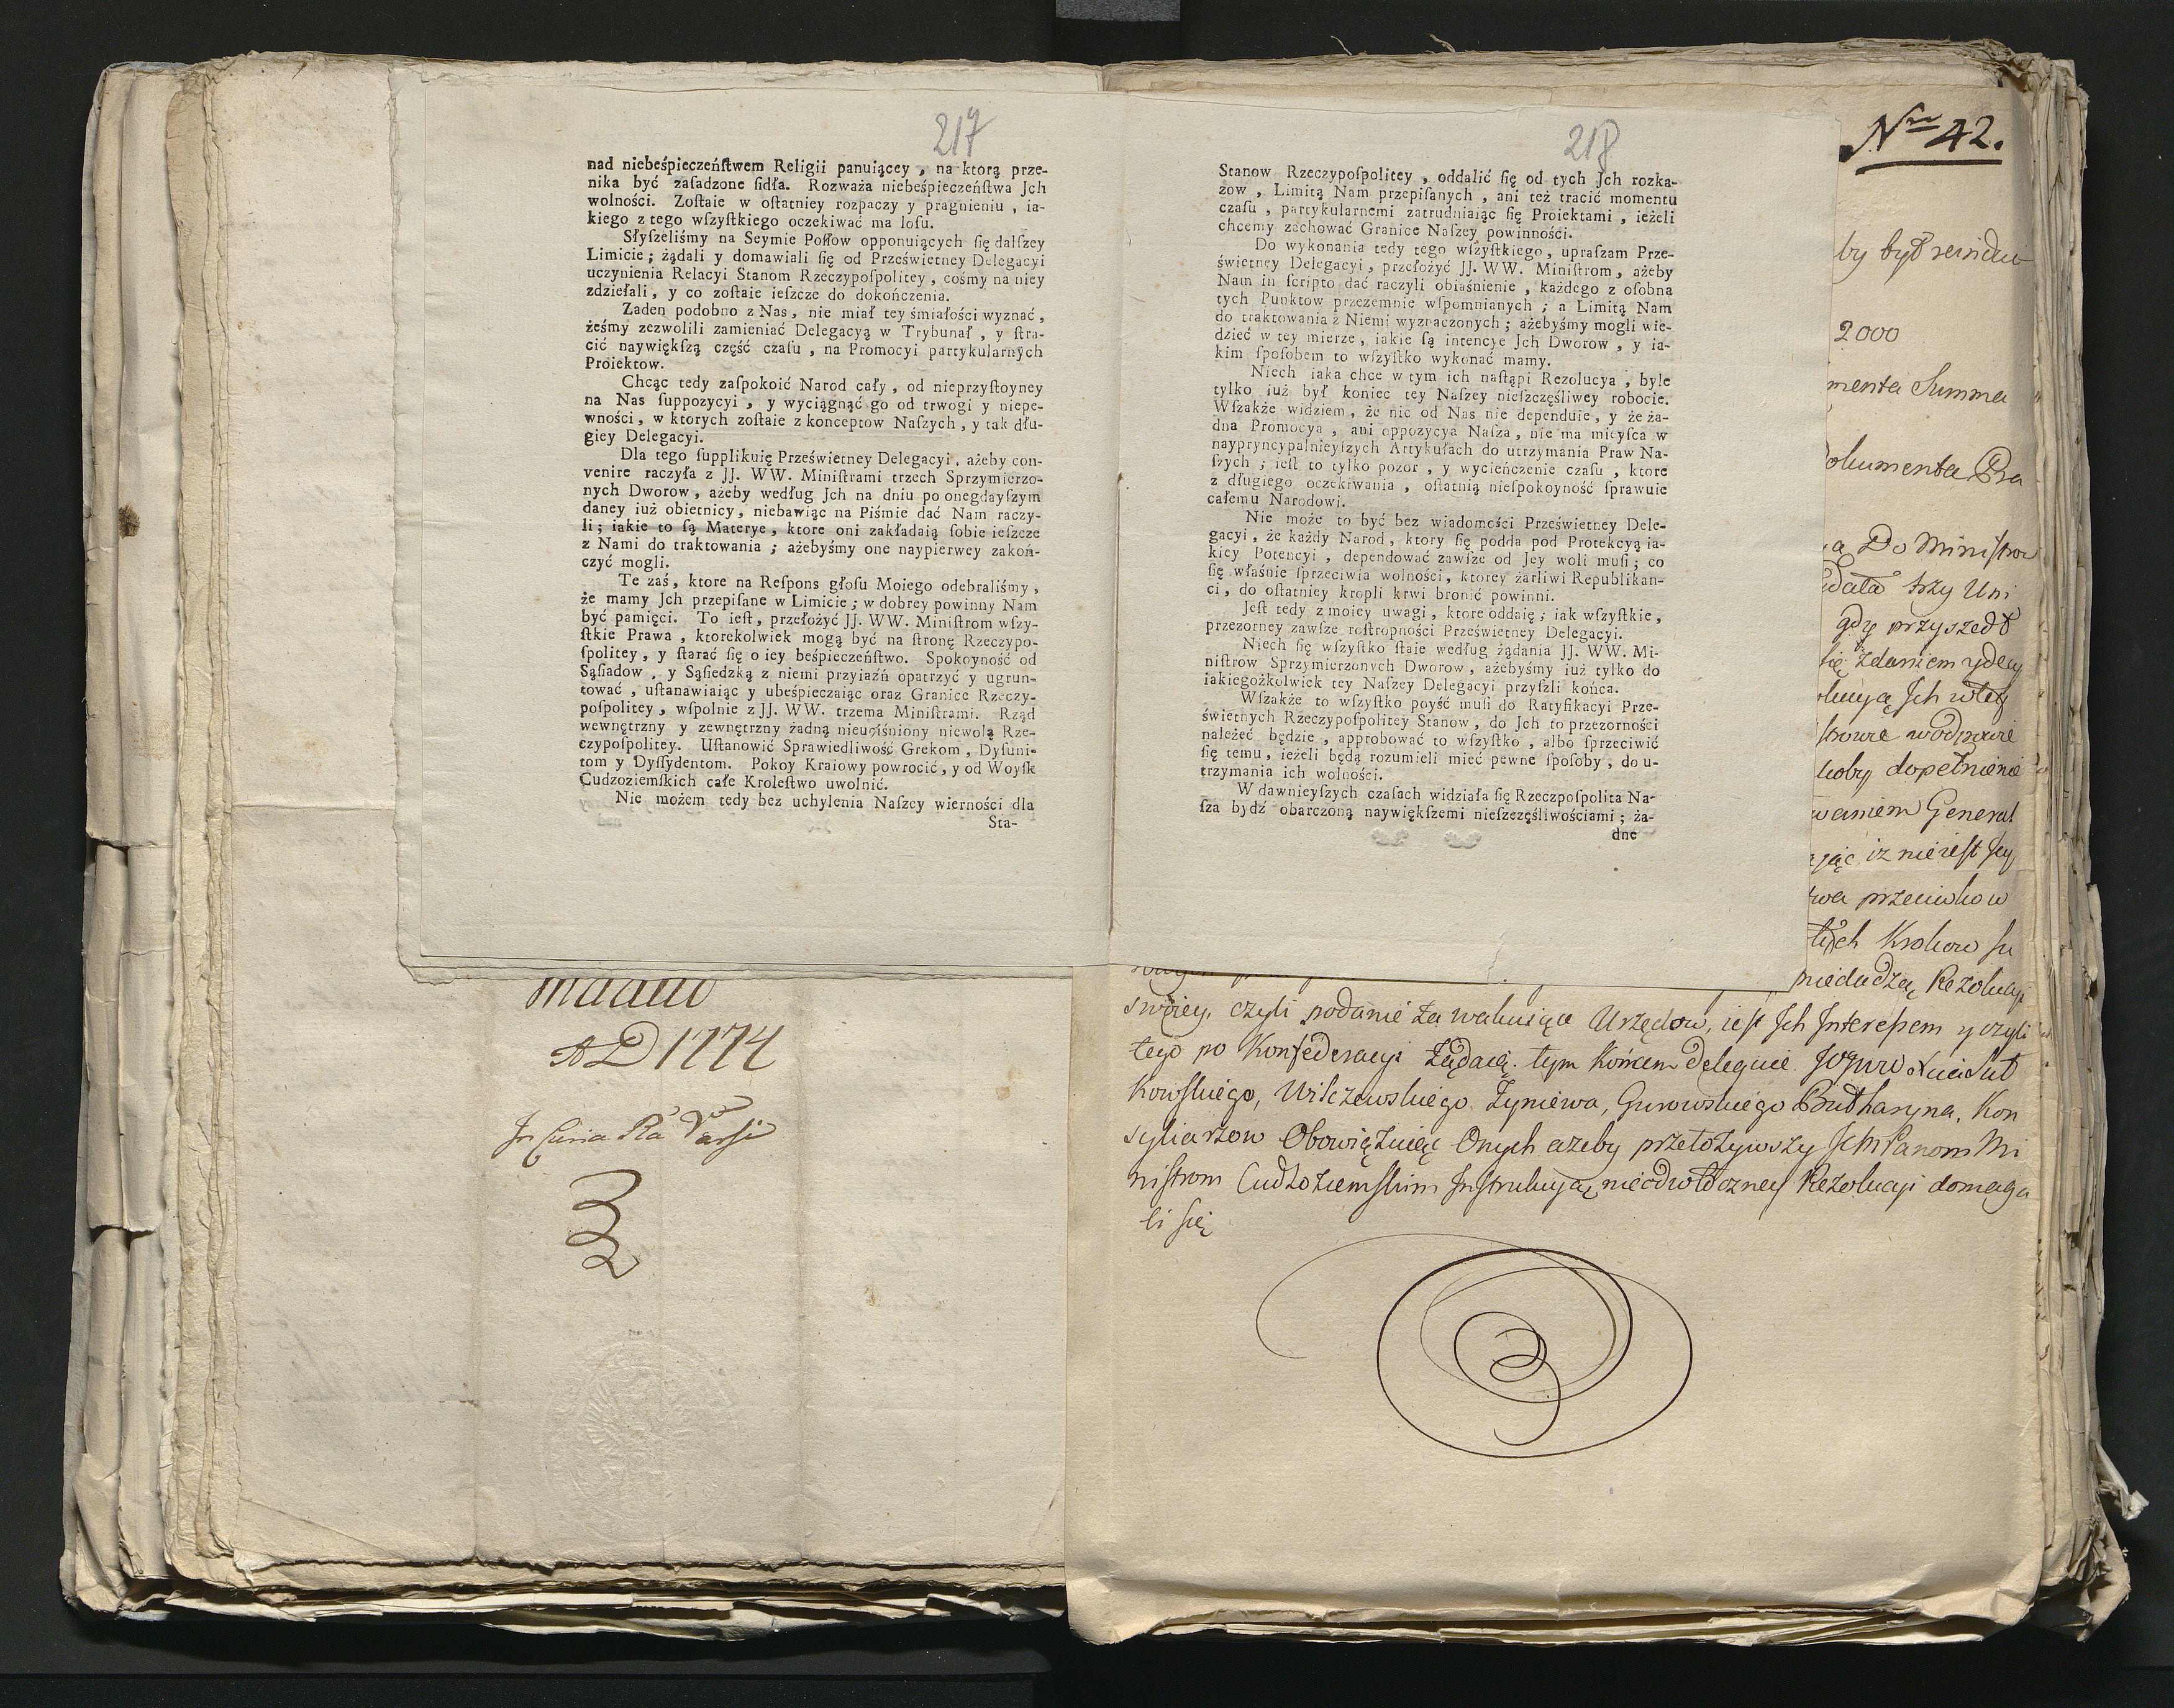 217
nad niebeśpieczeńſtwem Religii panuiącey, na ktorą prze-
nika być zaſadzone ſidła. Rozważa niebeśpieczeńſtwa Jch
wolności. Zoſtaie w oſtatniey rozpaczy y pragnieniu, ia-
kiego z tego wſzyſtkiego oczekiwać ma loſu.
Słyſzeliśmy na Seymie Poſłow opponuiących ſię dalſzey
Limicie; żądali y domawiali ſię od Prześwietney Delegacyi
uczynienia Relacyi Stanom Rzeczypoſpolitey, cośmy na niey
zdziełali, y co zoſtaie ieſzcze do dokończenia.
Zaden podobno z Nas, nie miał tey śmiałości wyznać,
żeśmy zezwolili zamieniać Delegacyą w Trybunał, y ſtra-
cić naywiększą część czaſu, na Promocyi partykularnych
Proiektow.
Chcąc tedy zaſpokoić Narod cały, od nieprzyſtoyney
na Nas ſuppozycyi, y wyciągnąć go od trwogi y niepe-
wności, w ktorych zoſtaie z konceptow Naſzych, y tak dłu-
giey Delegacyi.
Dla tego ſupplikuię Prześwietney Delegacyi, ażeby con-
venire raczyła z JJ. WW. Miniſtrami trzech Sprzymierzo-
nych Dworow, ażeby według Jch na dniu po onegdayſzym
daney iuż obietnicy, niebawiąc na Piśmie dać Nam raczy-
li; iakie to ſą Materye, ktore oni zakładaią ſobie ieſzcze
z Nami do traktowania; ażebyśmy one naypierwey zakoń-
czyć mogli.
Te zaś, ktore na Reſpons głoſu Moiego odebraliśmy,
że mamy Jch przepiſane w Limicie; w dobrey powinny Nam
być pamięci. To ieſt, przełożyć JJ. WW. Miniſtrom wſzy-
ſtkie Prawa, ktorekolwiek mogą być na ſtronę Rzeczypo-
ſpolitey, y ſtarać ſię o iey beśpieczeńſtwo. Spokoyność od
Sąſiadow, y Sąſiedzką z niemi przyiaźń opatrzyć y ugrun-
tować, uſtanawiaiąc y ubeśpieczaiąc oraz Granice Rzeczy-
poſpolitey, wſpolnie z JJ. WW. trzema Miniſtrami. Rząd
wewnętrzny y zewnętrzny żadną nieuciśniony niewolą Rze-
czypoſpolitey. Uſtanowić Sprawiedliwość Grekom, Dyſuni-
tom y Dyſſydentom. Pokoy Kraiowy powrocić, y od Woyſk
Cudzoziemſkich całe Kroleſtwo uwolnić.
Nie możem tedy bez uchylenia Naſzey wierności dla
Sta-
218
Stanow Rzeczypoſpolitey, oddalić ſię od tych Jch rozka-
zow, Limitą Nam przepiſanych, ani też tracić momentu
czaſu, partykularnemi zatrudniaiąc ſię Proiektami, ieżeli
chcemy zachować Granice Naſzey powinności.
Do wykonania tedy tego wſzyſtkiego, upraſzam Prze-
świetney Delegacyi, przełożyć JJ. WW. Miniſtrom, ażeby
Nam in ſcripto dać raczyli obiaśnienie, każdego z oſobna
tych Punktow przezemnie wſpomnianych; a Limitą Nam
do traktowania z Niemi wyznaczonych; ażebyśmy mogli wie-
dzieć w tey mierze, iakie ſą intencye Jch Dworow, y ia-
kim ſpoſobem to wſzyſtko wykonać mamy.
Niech iaka chce w tym ich naſtąpi Rezolucya, byle
tylko iuż był koniec tey Naſzey nieſzczęśliwey robocie.
Wſzakże widziem, że nic od Nas nie dependuie, y że ża-
dna Promocya, ani oppozycya Naſza, nie ma mieyſca w
naypryncypalnieyſzych Artykułach do utrzymania Praw Na-
ſzych; ieſt to tylko pozor, y wycieńczenie czaſu, ktore
z długiego oczekiwania, oſtatnią nieſpokoyność ſprawuie
całemu Narodowi.
Nie może to być bez wiadomości Prześwietney Dele-
gacyi, że każdy Narod, ktory ſię podda pod Protekcyą ia-
kiey Potencyi, dependować zawſze od Jey woli muſi; co
ſię właśnie ſprzeciwia wolności, ktorey żarliwi Republikan-
ci, do oſtatniey kropli krwi bronić powinni.
Jeſt tedy z moiey uwagi, ktore oddaię; iak wſzyſtkie,
przezorney zawſze roſtropności Prześwietney Delegacyi.
Niech ſię wſzyſtko ſtaie według żądania JJ. WW. Mi-
niſtrow Sprzymierzonych Dworow, ażebyśmy iuż tylko do
iakiegożkolwiek tey Naſzey Delegacyi przyſzli końca.
Wſzakże to wſzyſtko poyść muſi do Ratyfikacyi Prze-
świetnych Rzeczypoſpolitey Stanow, do Jch to przezorności
należeć będzie, approbować to wſzyſtko, albo ſprzeciwić
ſię temu, ieżeli będą rozumieli mieć pewne ſpoſoby, do u-
trzymania ich wolności.
W dawnieyſzych czaſach widziała ſię Rzeczpoſpolita Na-
ſza bydź obarczoną naywiększemi nieſzczęśliwościami; ża-
dne
Nro 42.
by był
2000
menta Summa
Dokumenta Pra
a Do Ministrow
dała trzy Uni
gdy przyszedł
się zdaniem
Ich
dopełnienie
waniem General
iż nie iest Jey
wa przeciwko w
tych Krokow
niedadzą Rezolucyi
AD 1774
In Curia
swoiey, czyli podanie Urzędow, iest Ich Interessem y czyli
tego po Konfederacyi żądaią. tym końcem deleguie
kowskiego, Wilczewskiego, Zyniewa, Gurowskiego Kon
syliarzow Obowiązuiąc Onych azeby przełożywszy Jchm Panom Mi
nistrom Cudzoziemskim Instrukcyą, nieodwłoczney Rezolucyi domaga
li się